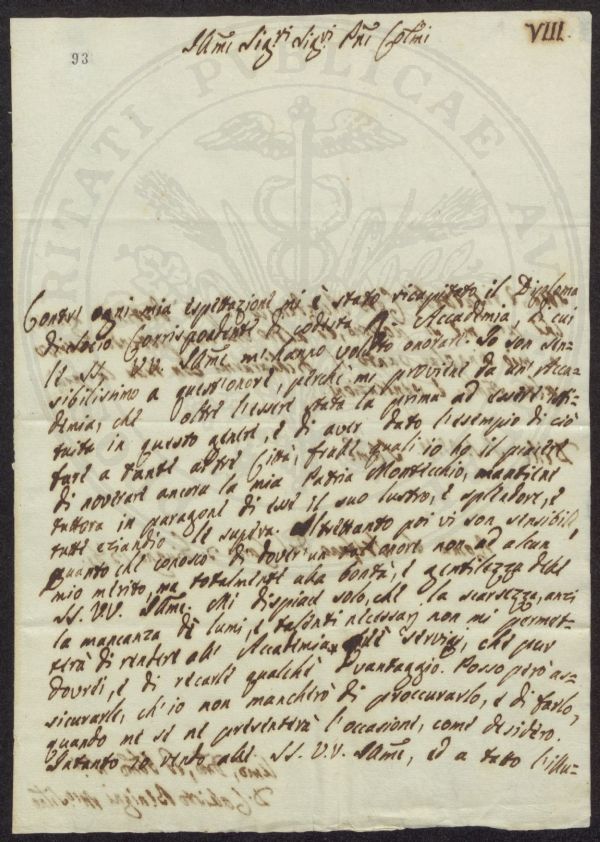 VIII.
93
Illmi Sigri Sigri Pni Colmi
Contro ogni mia espettazione mi è stato ricapitato il Diploma
di Socio Corrispondente di codesta Accademia, di cui
le SS. VV. Illme mi hanno voluto onorare. Io son sen-
sibilissimo a quest'onore, perchè mi proviene da un'Acca-
demia, che oltre l'essere stata la prima ad essere isti-
tuita in questo genere, e di aver dato l'esempio di ciò
fare a tante altre Città, fralle quali io ho il piacere
di noverare ancora la mia Patria Montecchio, mantiene
tuttora in paragone di esse il suo lustro, e splendore, e
tutte eziandio le supera. Altrettanto poi vi son sensibile,
quanto che conosco di dover un tal onore non ad alcun
mio merito, ma totalmente alla bontà, e gentilezza delle
SS. VV. Illme. Mi dispiace solo, che la scarsezza, anzi
la mancanza di lumi, e talenti necessarj non mi permet-
terà di rendere alle Accademia que' servigj, che pur
dovrei, e di recarle qualche vantaggio. Posso però as-
sicurarle, ch'io non mancherò di proccurarlo, e di farlo,
quando me se ne presenterà l'occasione, come desidero.
Intanto io rendo alle SS. VV. Illme, ed a tutto l'illu-
RITATI PUBLICAE AU